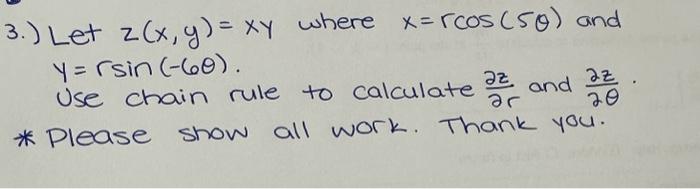 3.) Let z(x,y) = xy where x = rcos(5θ) and
y = rsin(-6θ).
Use chain rule to calculate ∂z/∂r and ∂z/∂θ.
* Please show all work. Thank you.